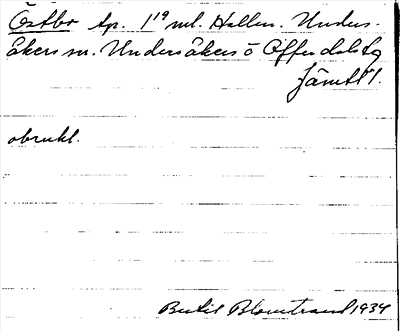 Östbo hp. 1 19 ml. Hallen. Unders-
åkers sn. Undersåkers o Offerdals tg
Jämtl l.
obrukl.
Bertil Blomstrand 1934